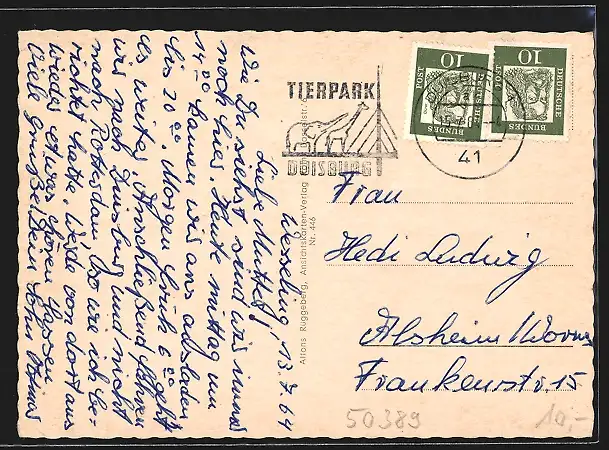 Wesseling, 13.7.64
Liebe Mutter!
Wie Du siehst sind wir immer
noch hier. Heute mittag um
14.00 kamen wir ans ausladen
bis 20.00. Morgen früh 6.00 geht
es weiter. Anschließend fahren
wir nach Duisburg und nicht
nach Rotterdam, so wie ich be-
richtet hatte. Werde von dort aus
wieder etwas hören lassen
Viele Grüße Dein Sohn
Alfons Rüggeberg, Ansichtskarten-Verlag
Nr. 446
TIERPARK
DUISBURG
41
10
POST
DEUTSCHE
BUNDES
10
POST
DEUTSCHE
BUNDES
Frau
Hedi Ludwig
Alsheim Worms
Frankenstr. 15
50389
10,-